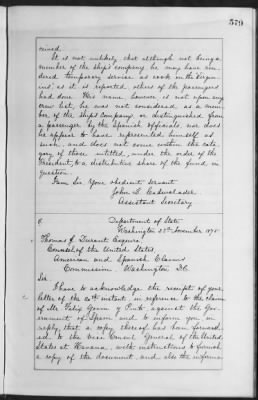 579
ceived.
It is not unlikely that although not being a
member of the ship's company he may have ren-
dered temporary service as cook on the Virgin-
ius, as it is reported others of the passengers
had done. His name however is not upon any
crew list, he was not considered as a mem-
ber of the ship's company as distinguished from
a passenger by the Spanish officials, nor does
he appear to have represented himself as
such, and does not come within the cate-
gory of those entitled, under the order of the
President, to a distributive share of the fund in
question.
I am Sir Your obedient servant
John L. Cadwalader
Assistant Secretary
Department of State
Washington 22d November 1875
Thomas J. Durant Esquire
Counsel of the United States
American and Spanish Claims
Commission, Washington D.C.
Sir
I have to acknowledge the receipt of your
letter of the 20th instant, in reference to the claim
of Mr Felix Govin y Pinto against the Gov-
ernment of Spain and to inform you in
reply, that a copy thereof has been forward-
ed to the Vice Consul General of the United
States at Havana, with instructions to furnish
a copy of the document and also the informa-